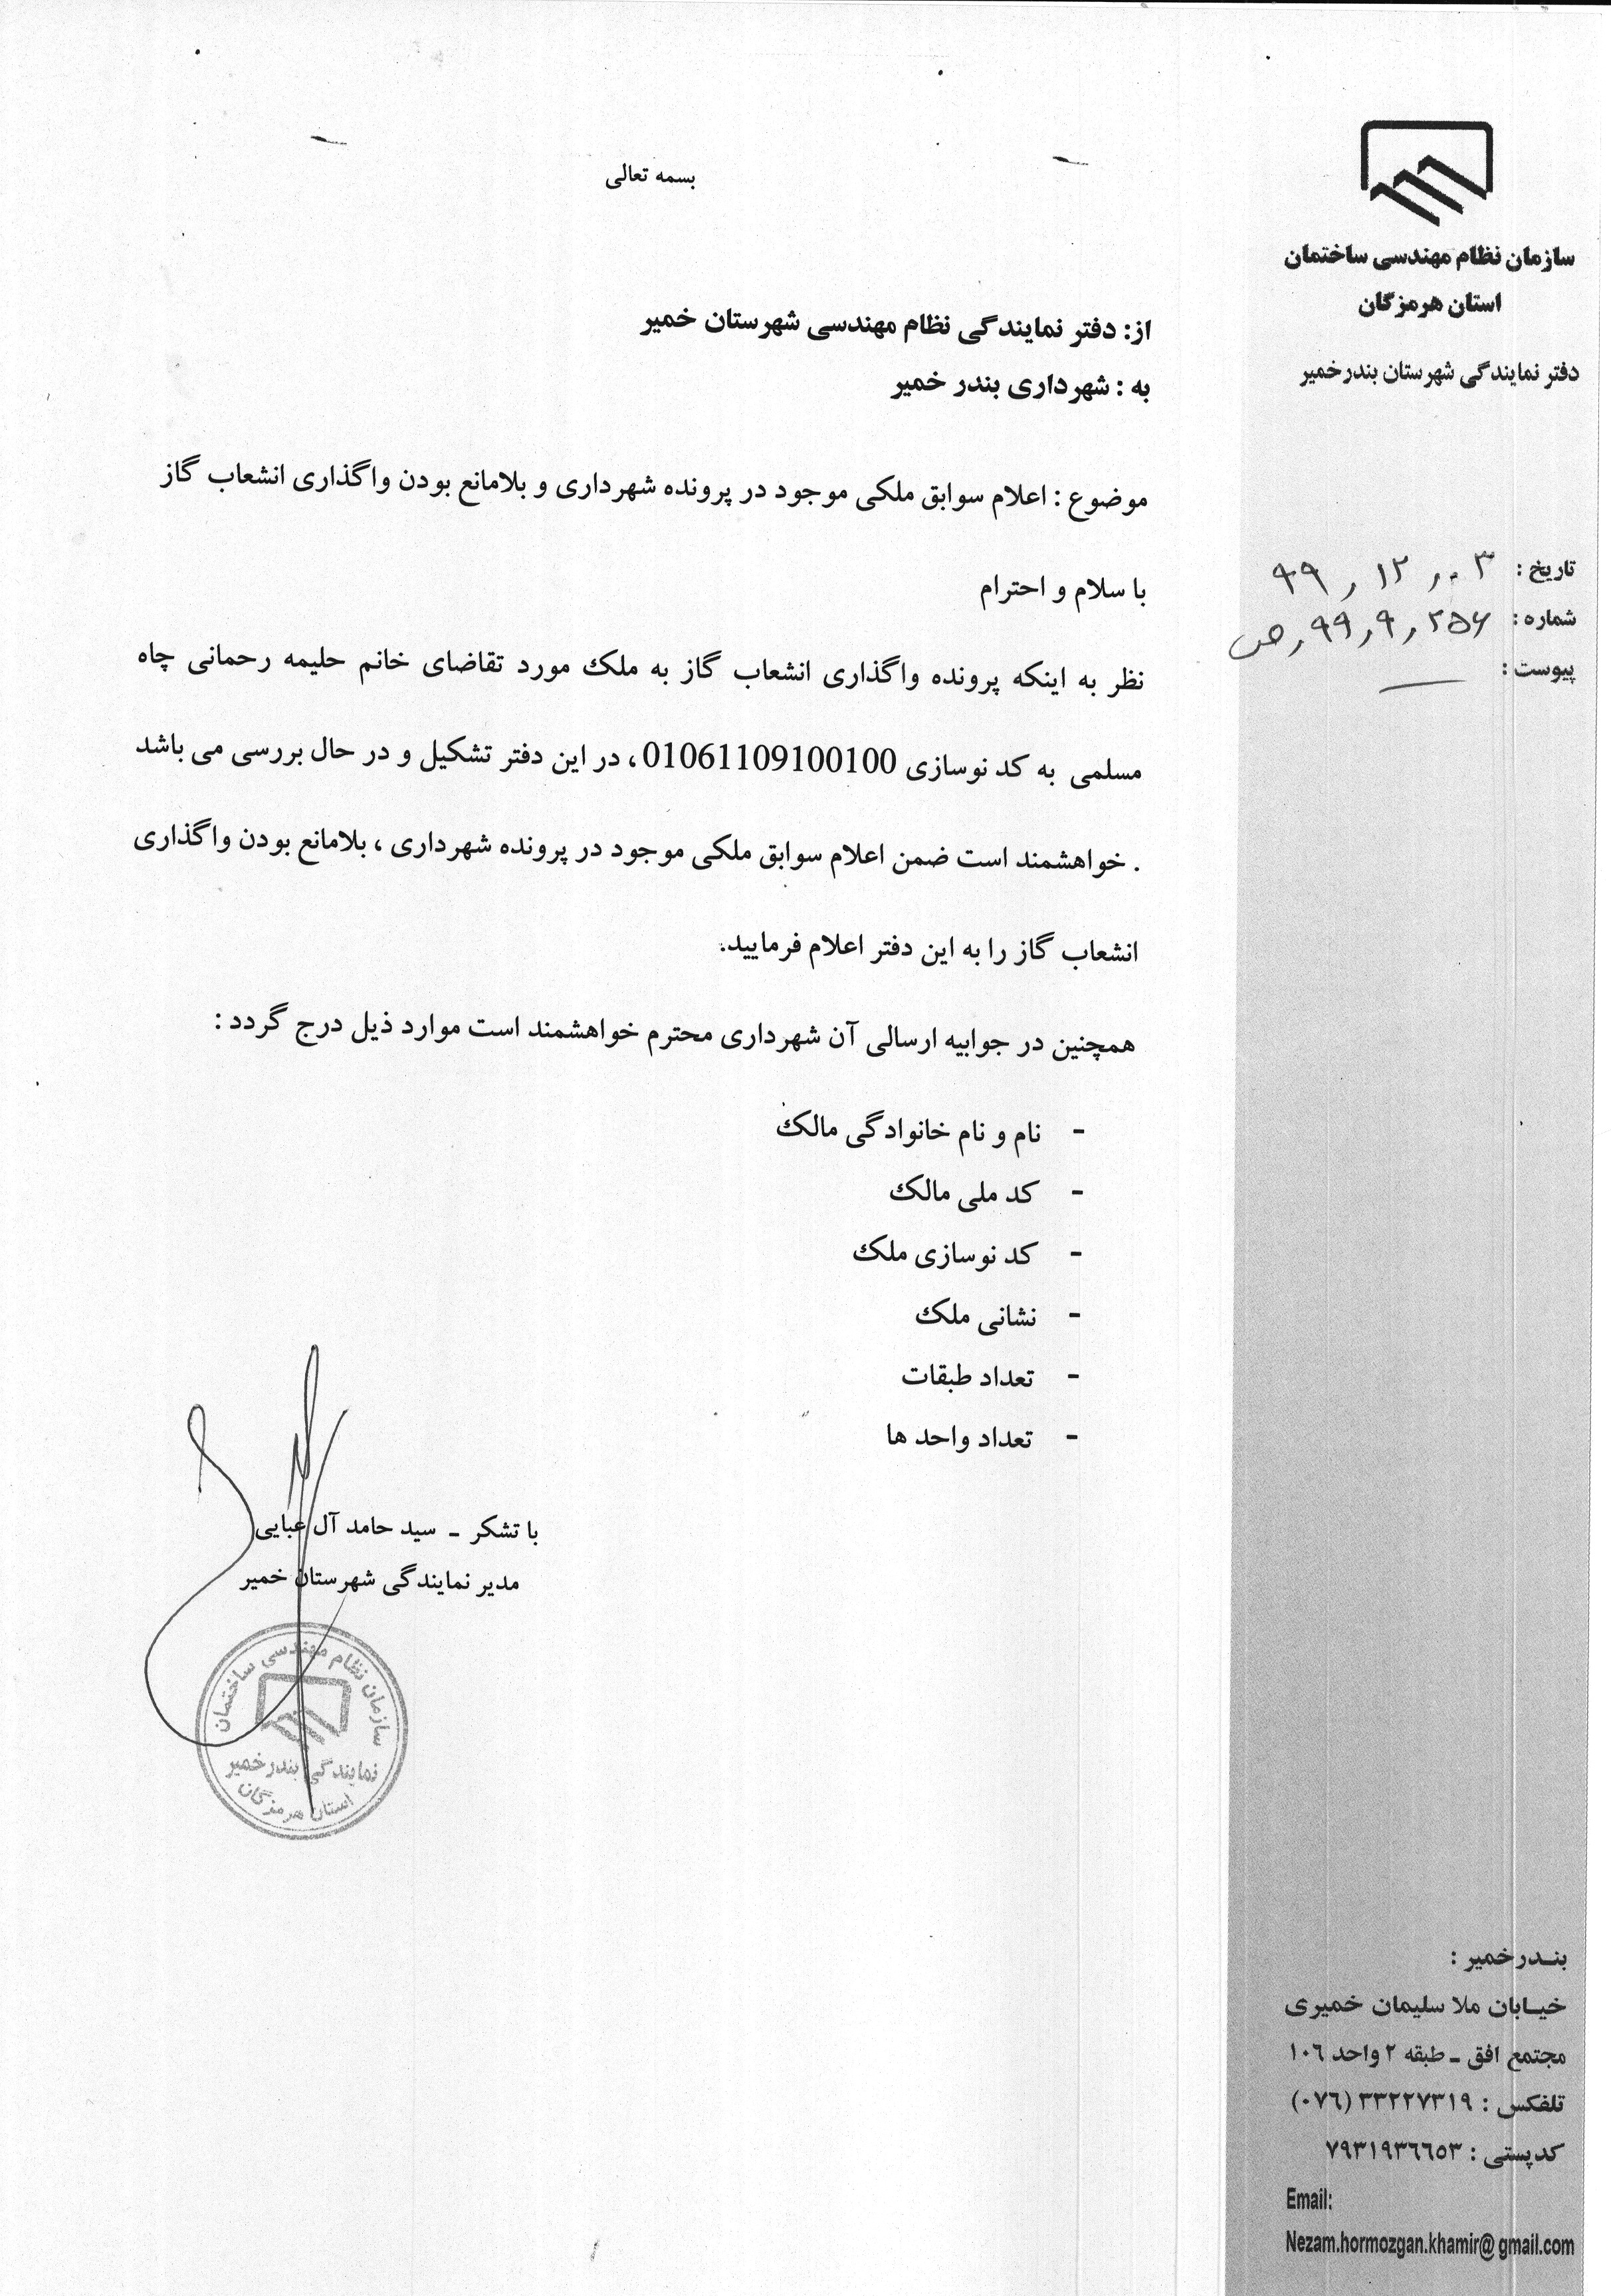 بسمه تعالی
سازمان نظام مهندسی ساختمان
استان هرمزگان
دفتر نمایندگی شهرستان بندرخمیر
تاریخ : ۹۹٫۱۲٫۰۳
شماره : ۲۵۶٫۹٫۹۹٫ص
پیوست : ــ
از: دفتر نمایندگی نظام مهندسی شهرستان خمیر
به : شهرداری بندر خمیر
موضوع : اعلام سوابق ملکی موجود در پرونده شهرداری و بلامانع بودن واگذاری انشعاب گاز
با سلام و احترام
نظر به اینکه پرونده واگذاری انشعاب گاز به ملک مورد تقاضای خانم حلیمه رحمانی چاه
مسلمی به کد نوسازی 01061109100100، در این دفتر تشکیل و در حال بررسی می باشد
. خواهشمند است ضمن اعلام سوابق ملکی موجود در پرونده شهرداری ، بلامانع بودن واگذاری
انشعاب گاز را به این دفتر اعلام فرمایید.
همچنین در جوابیه ارسالی آن شهرداری محترم خواهشمند است موارد ذیل درج گردد :
- نام و نام خانوادگی مالک
- کد ملی مالک
- کد نوسازی ملک
- نشانی ملک
- تعداد طبقات
- تعداد واحد ها
با تشکر ـ سید حامد آل عبایی
مدیر نمایندگی شهرستان خمیر
سازمان نظام مهندسی ساختمان
نمایندگی بندرخمیر
استان هرمزگان
بندرخمیر :
خیابان ملا سلیمان خمیری
مجتمع افق ـ طبقه ۲ واحد ۱۰۶
تلفکس : ۳۳۲۲۷۳۱۹ (۰۷۶)
کدپستی : ۷۹۳۱۹۳۶۶۵۳
Email:
Nezam.hormozgan.khamir@gmail.com